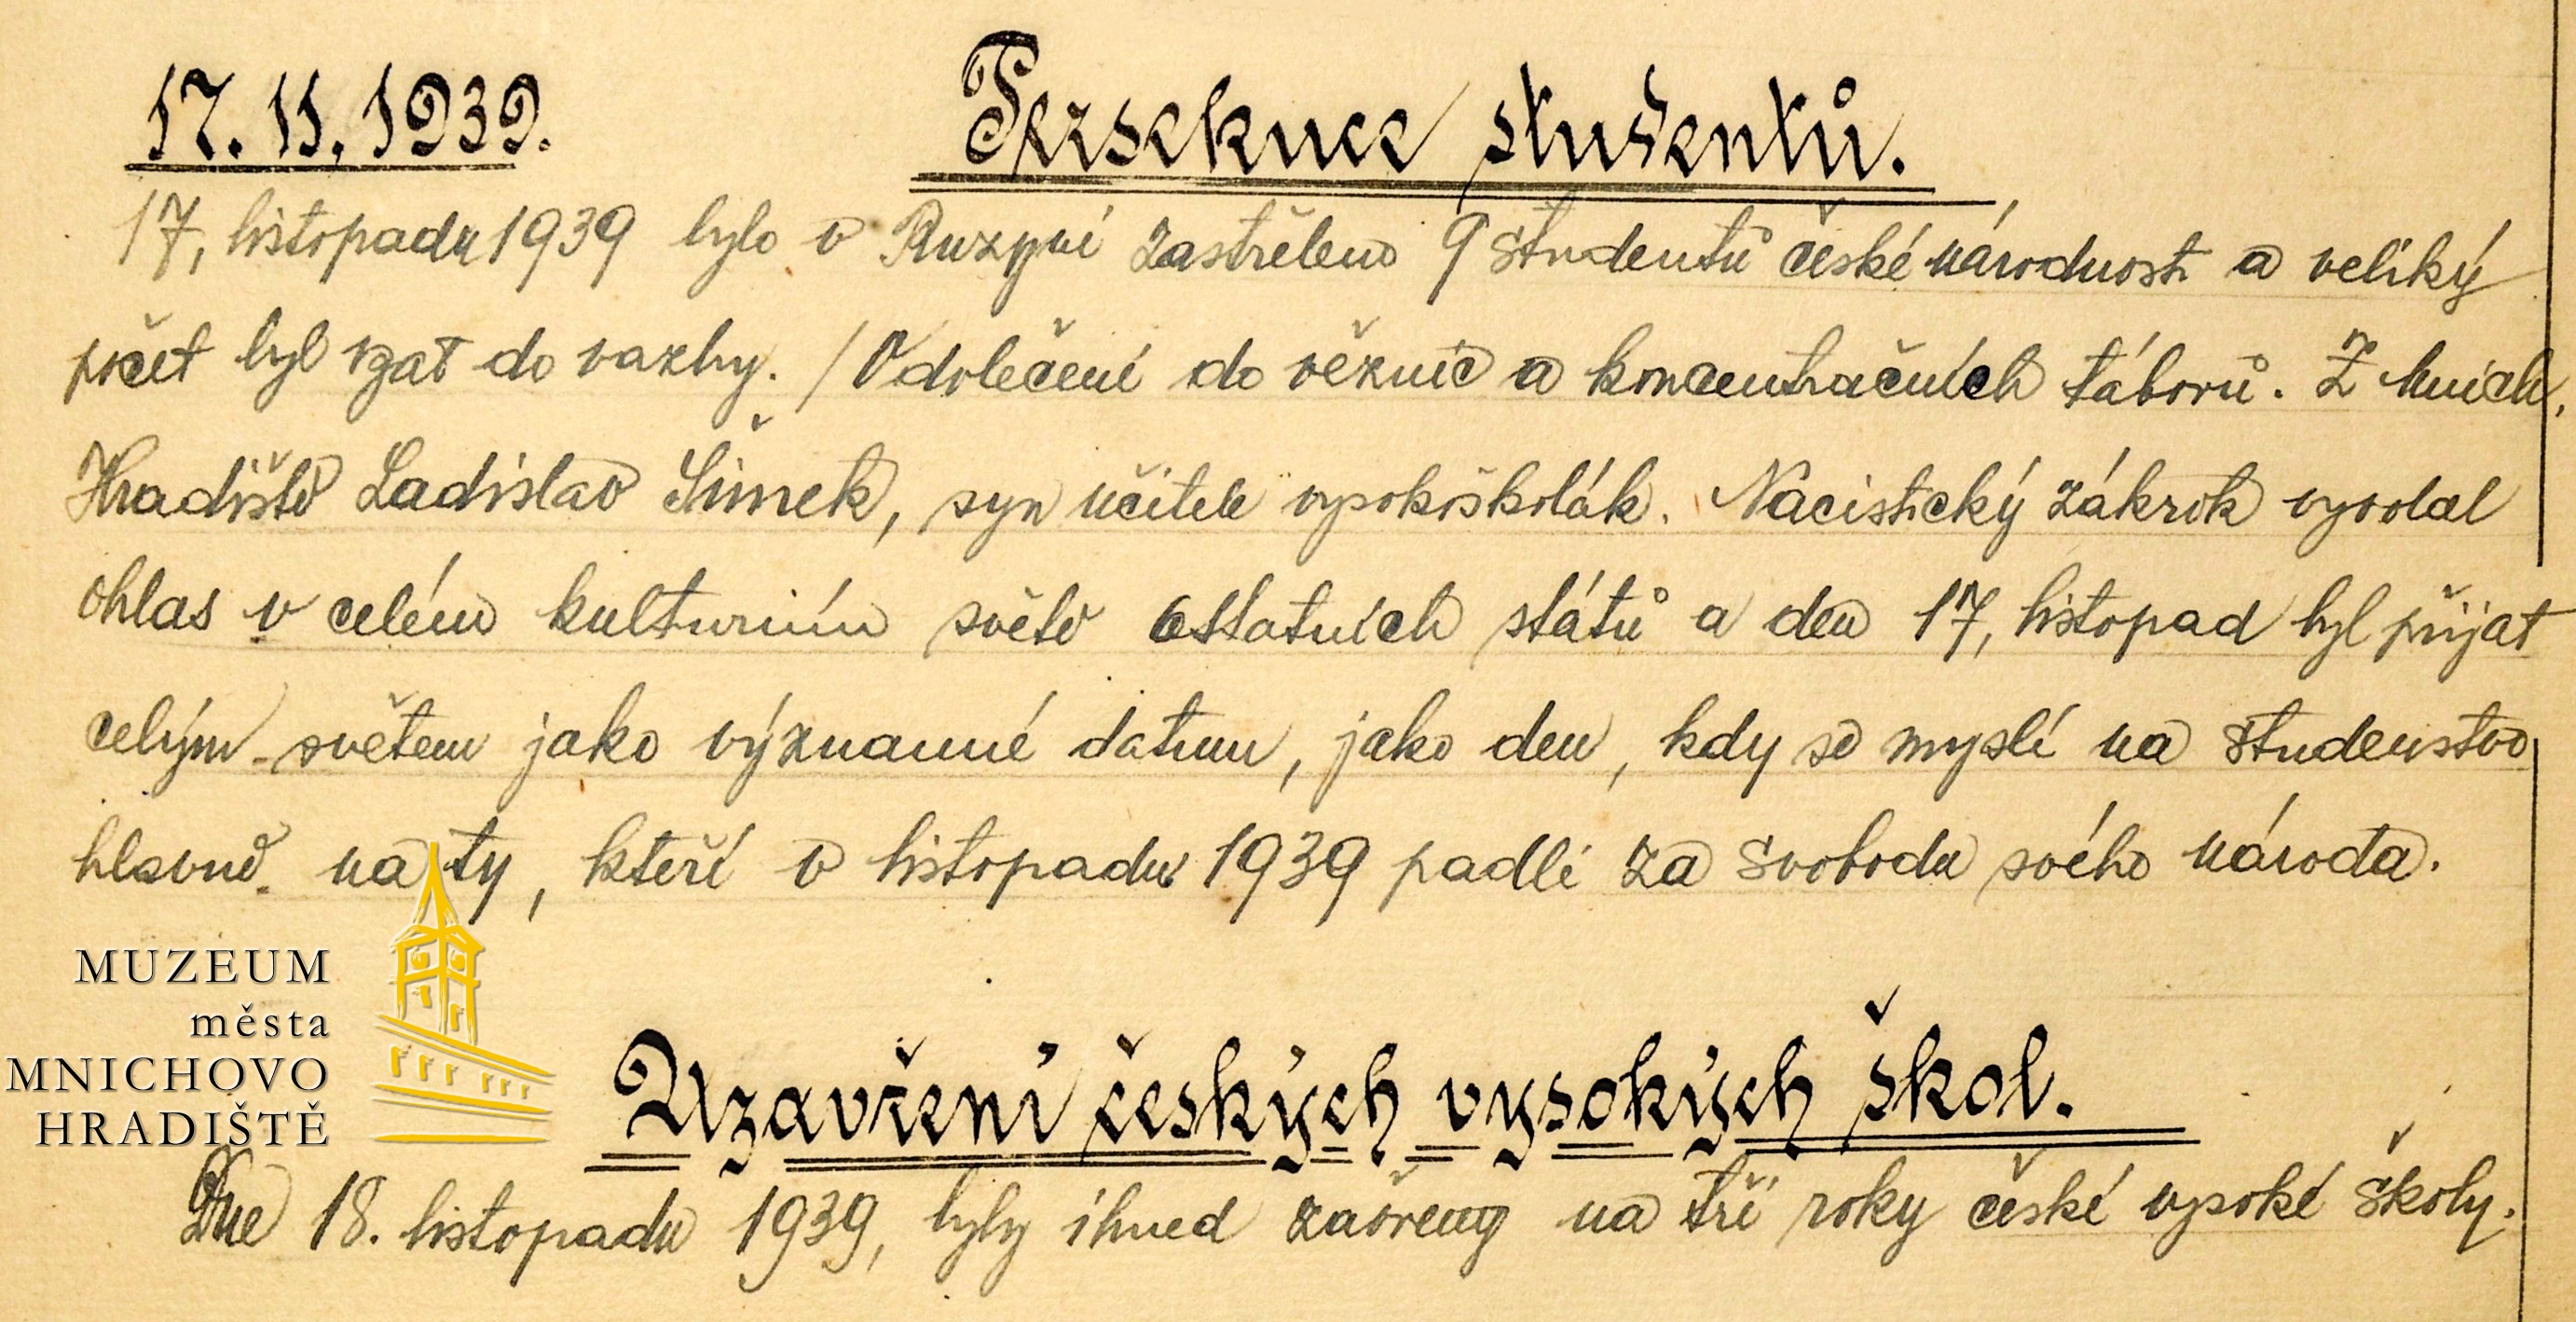 17. 11. 1939. Persekuce studentů.
17, listopadu 1939 bylo v Ruzyni zastřeleno 9 studentů české národnosti a veliký
počet byl vzat do vazby. / Odvlečeni do věznic a koncentračních táborů. Z Mnich.
Hradiště Ladislav Šimek, syn učitele vysokoškolák. Nacistický zákrok vyvolal
ohlas v celém kulturním světě ostatních států a den 17, listopad byl přijat
celým světem jako významné datum, jako den, kdy se myslí na studenstvo
hlavně na ty, kteří v listopadu 1939 padli za svobodu svého národa.
MUZEUM
města
MNICHOVO
HRADIŠTĚ
Uzavření českých vysokých škol.
Dne 18. listopadu 1939, byly ihned zavřeny na tři roky české vysoké školy.